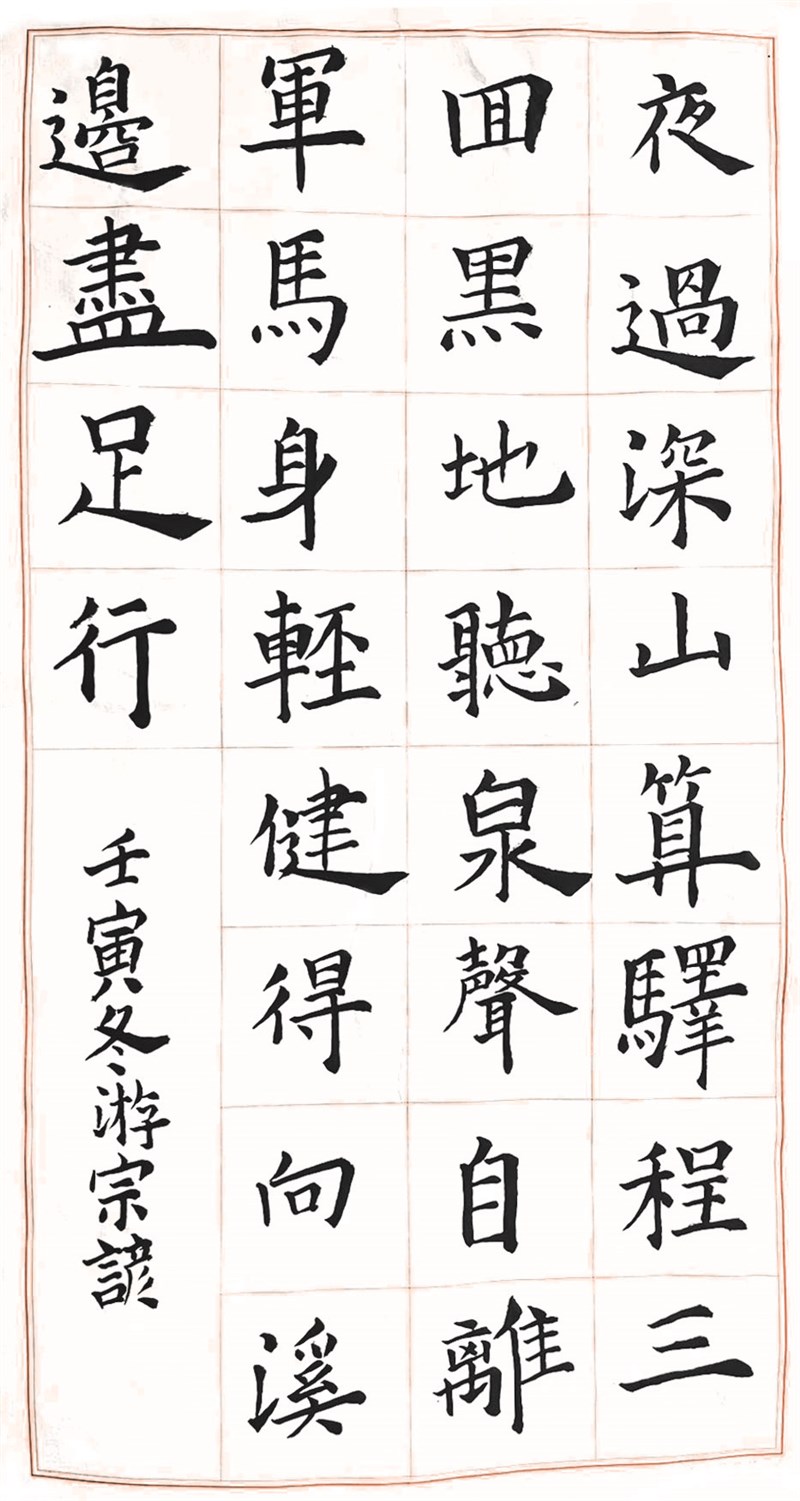 夜過深山算驛程三
囬黑地聽泉聲自離
軍馬身輕健得向溪
邊盡足行
壬寅冬游宗諺